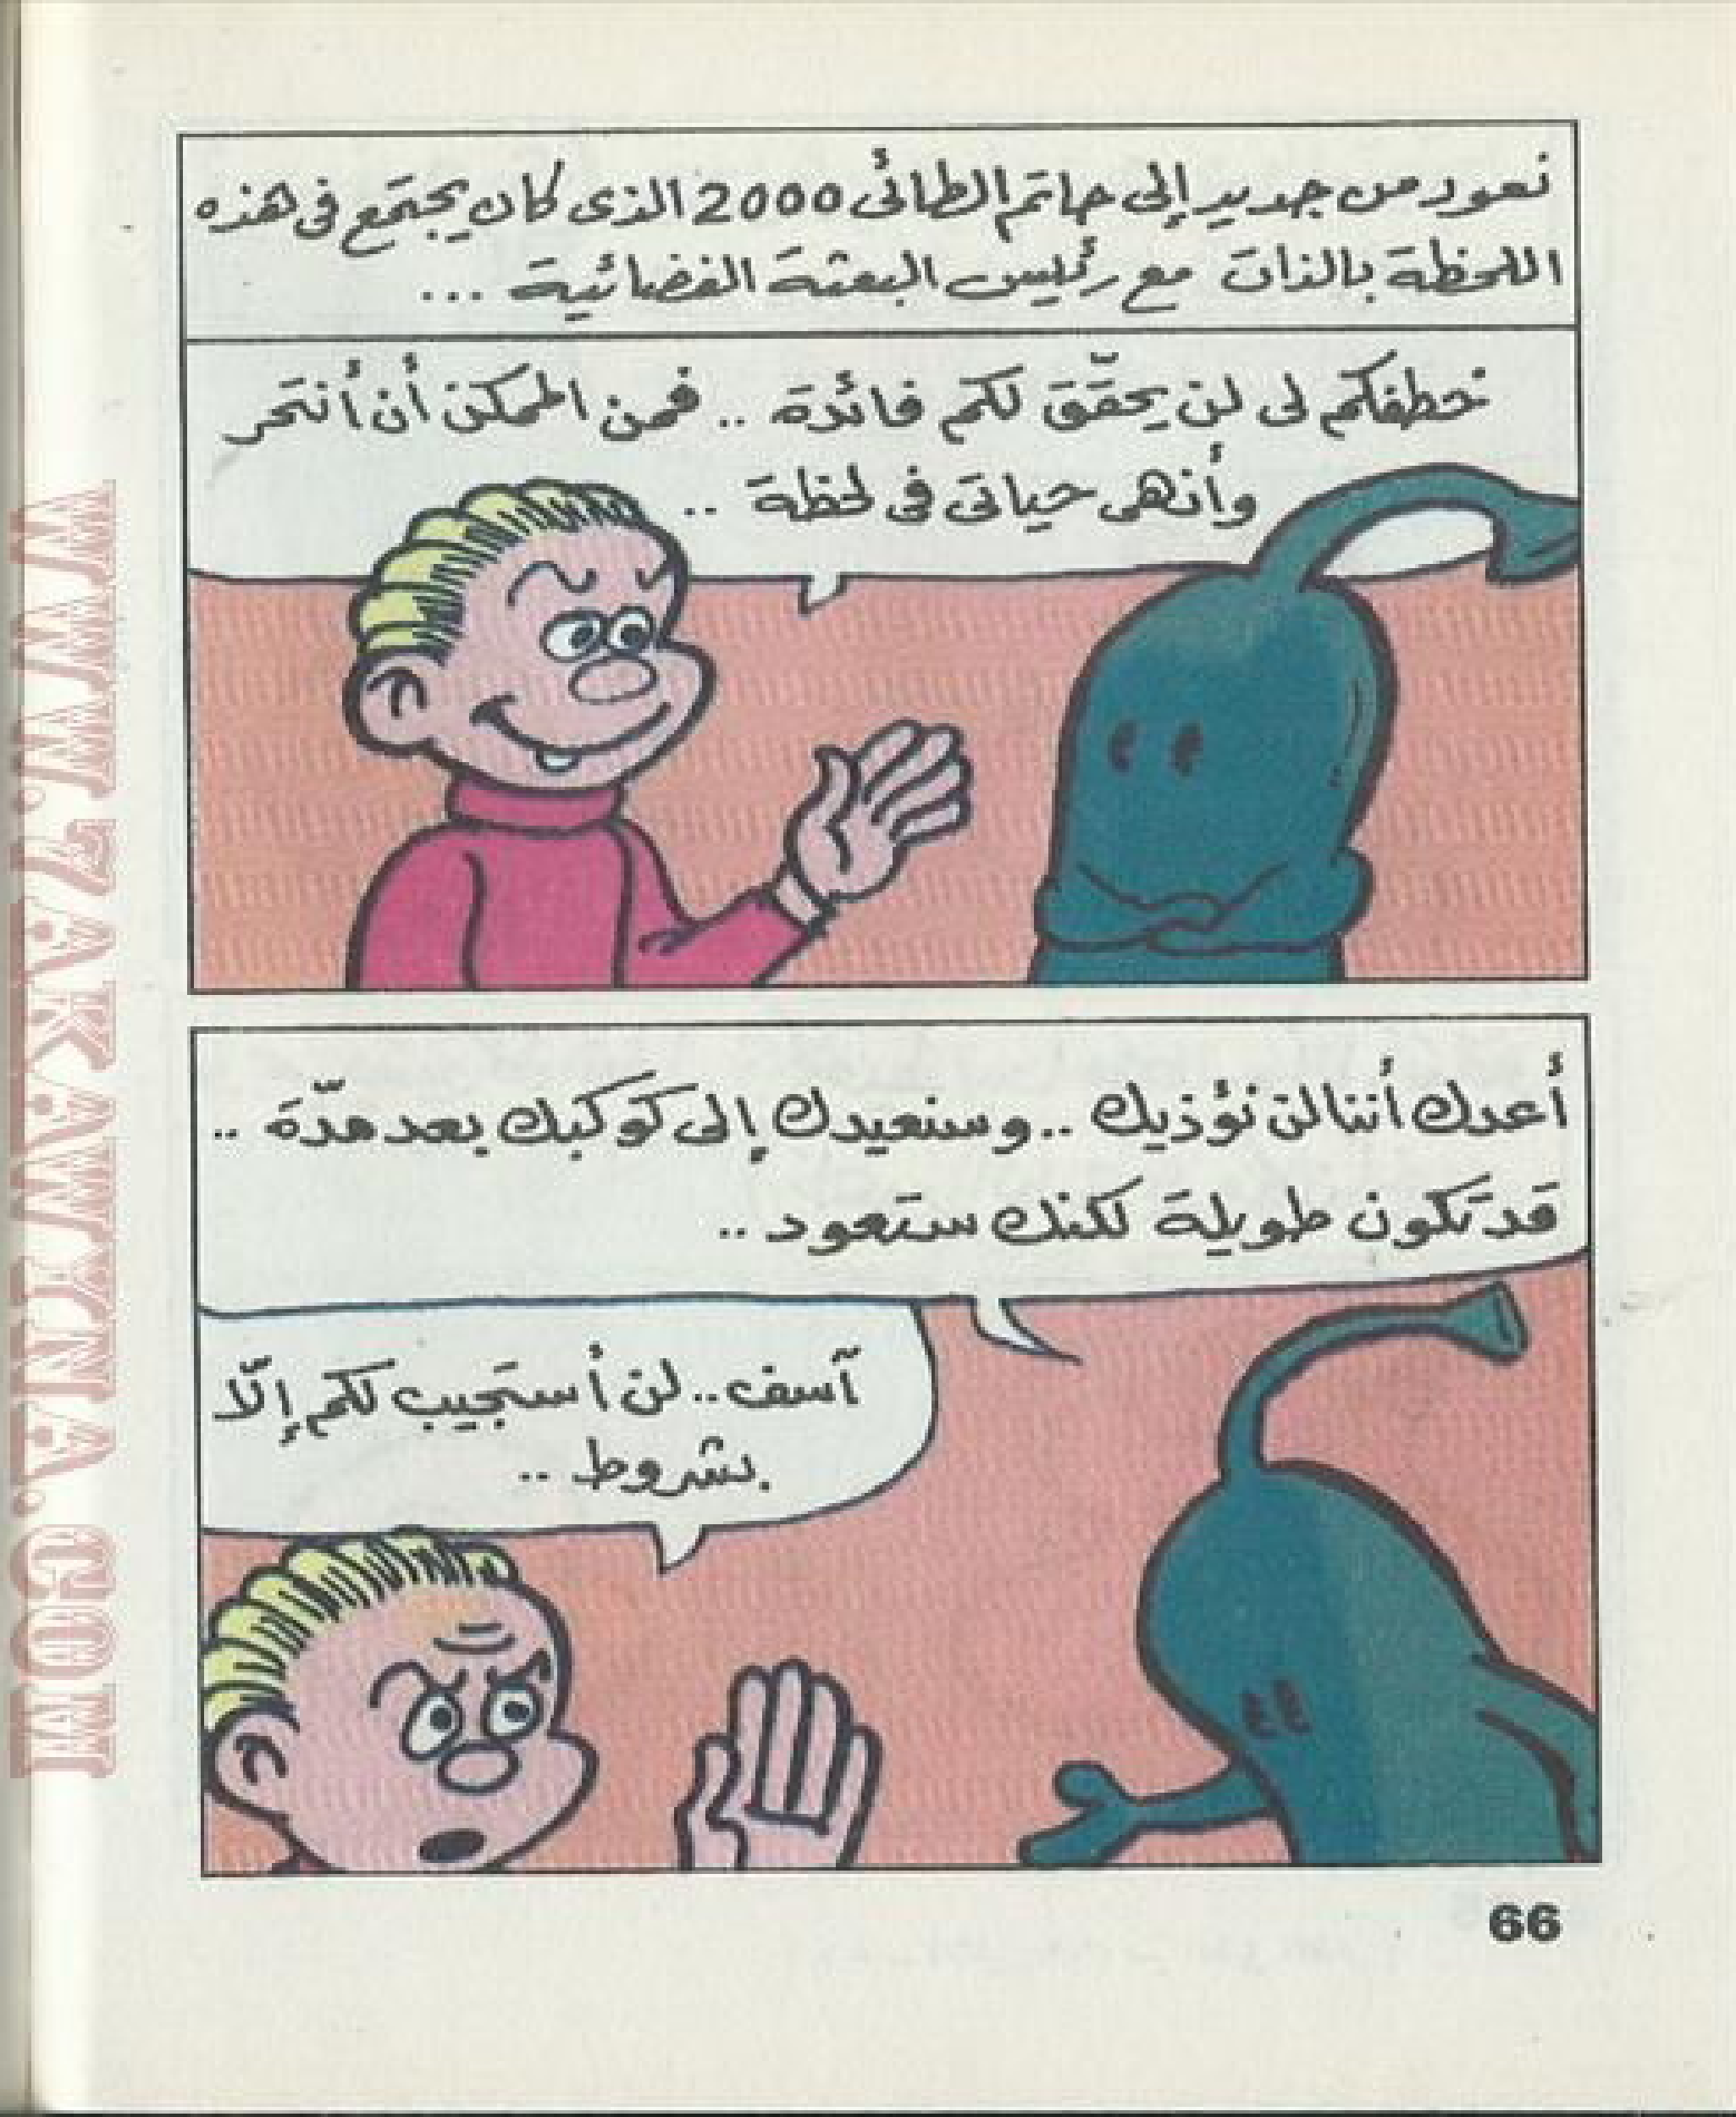 نعود من جديد إلى حاتم الطائى 2000 الذى كان يجتمع فى هذه
اللحظة بالذات مع رئيس البعثة الفضائية ...
خطفكم لى لن يحقّق لكم فائدة .. فمن الممكن أن أنتحر
وأنهى حياتى فى لحظة ..
أعدك أننا لن نؤذيك .. وسنعيدك إلى كوكبك بعد مدّة ..
قد تكون طويلة لكنك ستعود ..
آسف .. لن أستجيب لكم إلّا
بشروط ..
66
WWW.7AKAWEENA.COM